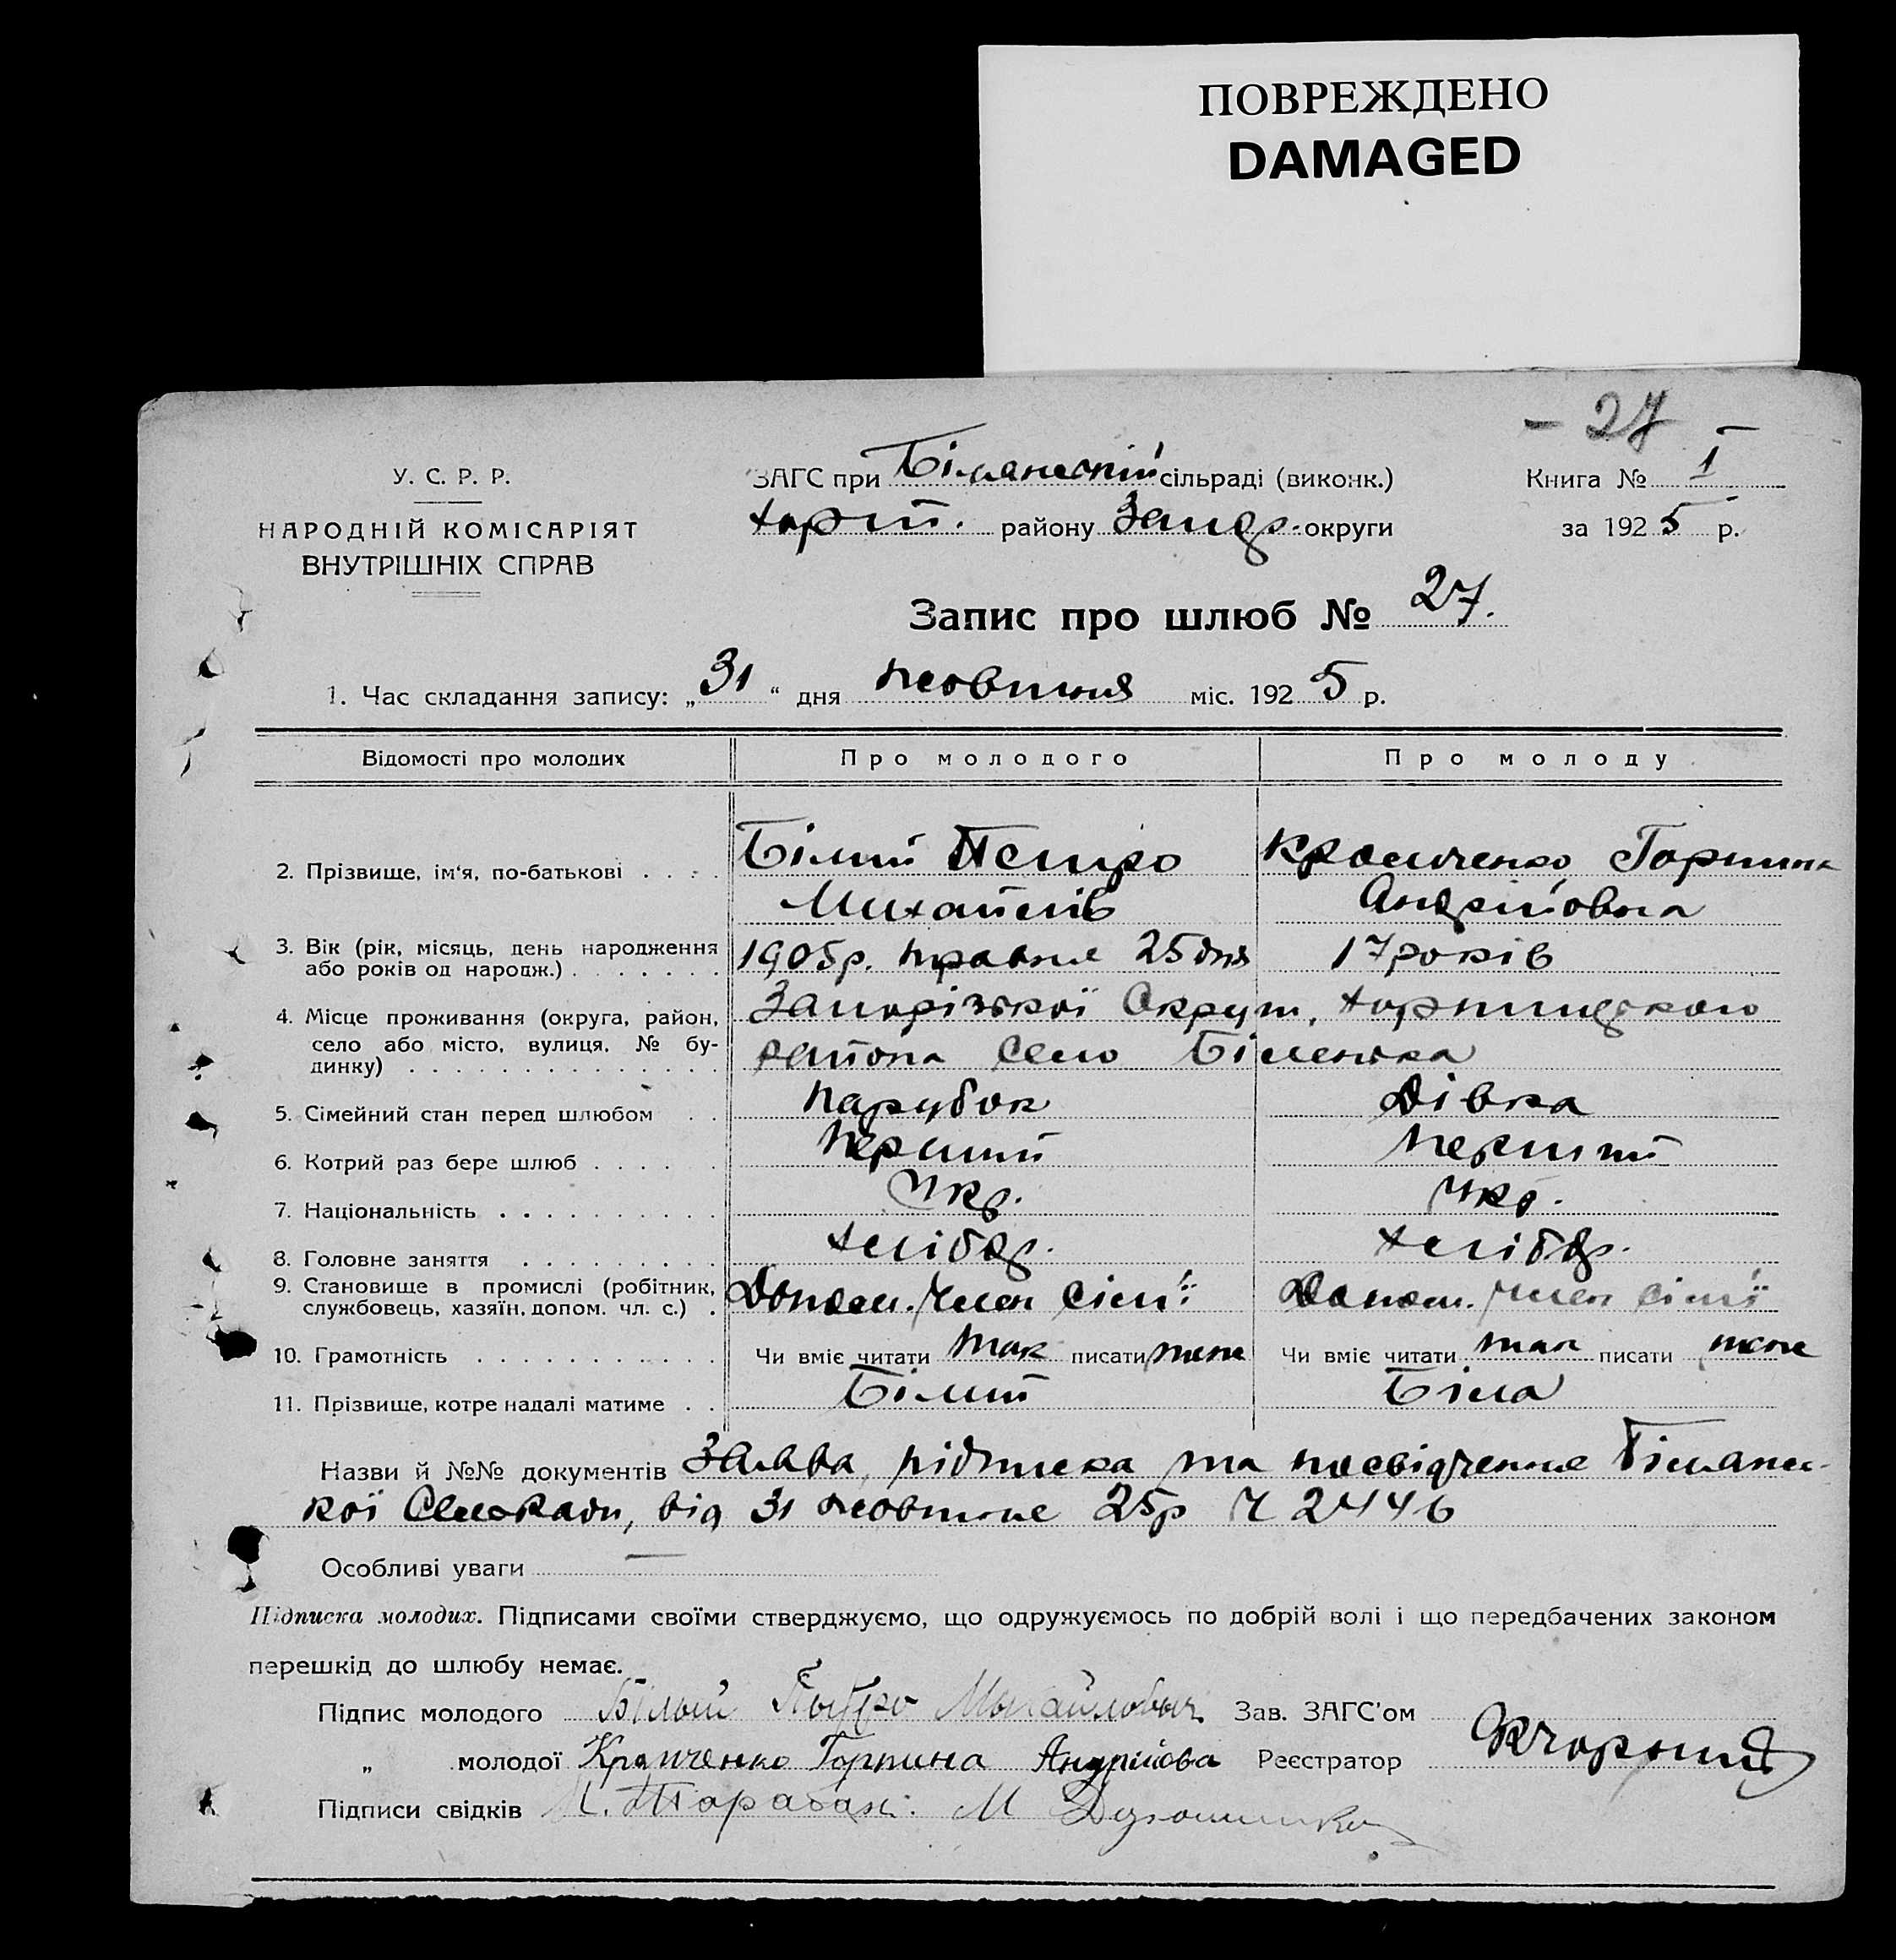 ПОВРЕЖДЕНО
DAMAGED
- 27
У. С. Р. Р.
НАРОДНІЙ КОМІСАРІЯТ
ВНУТРІШНІХ СПРАВ
ЗАГС при Білянській сільраді (виконк.)
Хорт. району Запор. округи
Книга № I
за 1925 р.
Запис про шлюб № 27.
1. Час складання запису: „31“ дня жовтня міс. 1925 р.
Відомості про молодих
Про молодого
Про молоду
2. Прізвище, ім'я, по-батькові . . . .
Білий Петро
Михайлів
Горпина
Андрійовна
3. Вік (рік, місяць, день народження
або років од народж.) . . . . . . .
1905р. травня 25 дня
17 років
4. Місце проживання (округа, район,
село або місто, вулиця, № бу-
динку) . . . . . . . . . . . . . .
Запорізької Округи, Хортицького
района село Біленька
5. Сімейний стан перед шлюбом . .
Парубок
Дівка
6. Котрий раз бере шлюб . . . . .
Перший
Перший
7. Національність . . . . . . . . . .
Укр.
Укр.
8. Головне заняття . . . . . . . . .
Хлібор.
Хлібор.
9. Становище в промислі (робітник,
службовець, хазяїн, допом. чл. с.) .
Допом. член сім'ї
Допом. член сім'ї
10. Грамотність . . . . . . . . . . .
Чи вміє читати так писати теж
Чи вміє читати так писати теж
11. Прізвище, котре надалі матиме . .
Білий
Біла
Назви й №№ документів Заява, підписка та посвідчення Білянсь-
кої Сельради, від 31 жовтня 25р Ч 2446
Особливі уваги —
Підписка молодих. Підписами своїми стверджуємо, що одружуємось по добрій волі і що передбачених законом
перешкід до шлюбу немає.
Підпис молодого Білый Пытро Мыхайловыч Зав. ЗАГС'ом
„ молодої Горпина Андрійова Реєстратор
Підписи свідків М